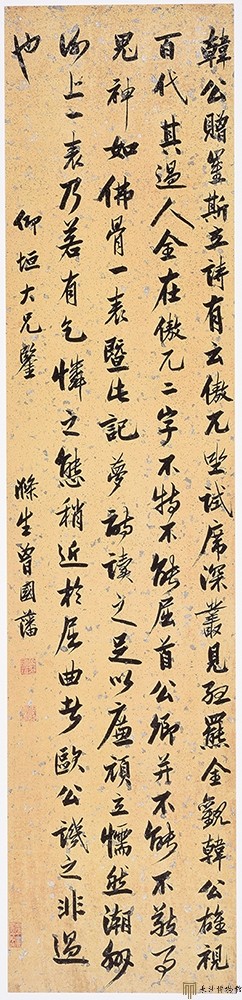 韓公贈崔斯立詩有云傲兀坐試席深叢見孤羆余觀韓公雄視
百代其過人全在傲兀二字不特不能屈首公卿并不能不敬事
鬼神如佛骨一表暨此記夢詩讀之足以廉頑立懦然潮州
謝上一表乃若有乞憐之態稍近於屈曲者歐公譏之非過
也
仰垣大兄鑒
滌生曾國藩
博物館